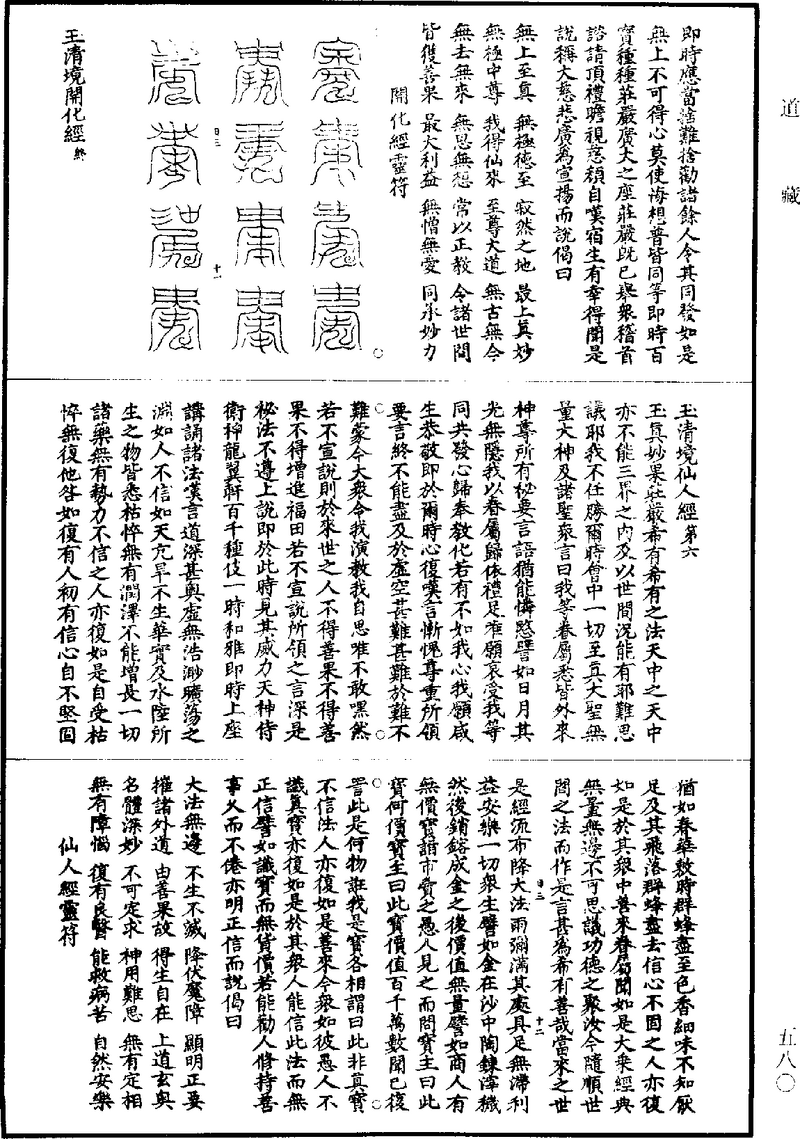 道藏
五八〇
即時應當捨難捨勸諸餘人令其同發如是
無上不可得心莫使悔想普皆同等即時百
寶種種莊嚴廣大之座莊嚴既已舉眾稽首
諮請頂禮瞻視慈顏自嘆宿生有幸得聞是
說稱大慈悲廣為宣揚而說偈曰
無上至真 無極德至 寂然之地 最上真妙
無極中尊 我得仙來 至尊大道 無古無今
無去無來 無思無想 常以正教 令諸世間
皆獲善果 最大利益 無憎無愛 同承妙力
開化經靈符
四三 十一
玉清境開化經終
玉清境仙人經第六
玉真妙果莊嚴希有希有之法天中之天中
亦不能三界之內及以世間況能有耶難思
議耶我不任勝爾時會中一切至真大聖無
量大神及諸聖眾言曰我等眷屬悉皆外來
神尊所有秘要言語猶能憐愍譬如日月其
光無隱我以眷屬歸依禮足唯願哀受我等
同共發心歸奉教化若有不如我心我願咸
生恭敬即於爾時心復嘆言慚愧尊重所領
要言終不能盡及於虛空甚難甚難於難不
難蒙今大眾令我演教我自思唯不敢嘿然
若不宣說則於來世之人不得善果不得善
果不得增進福田若不宣說所領之言深是
秘法不遵上說即於此時見其威力天神侍
衛桴龍翼駢百千種伎一時和雅即時上座
講誦諸法嘆言道深甚奧虛無浩渺曠蕩之
淵如人不信如天亢旱不生華實及水陸所
生之物皆悉枯悴無有潤澤不能增長一切
諸藥無有勢力不信之人亦復如是自受枯
悴無復他咎如復有人初有信心自不堅固
猶如春華敷時群蜂盡至色香細味不知厭
足及其飛落群蜂盡去信心不固之人亦復
如是於其眾中善來眷屬聞如是大乘經典
無量無邊不可思議功德之聚汝今隨順世
間之法而作是言甚為希有善哉當來之世
四三 十二
是經流布降大法雨彌滿其處具足無滯利
益安樂一切眾生譬如金在沙中陶鍊滓穢
然後銷鎔成金之後價值無量譬如商人有
無價寶詣市賣之愚人見之而問寶主曰此
寶何價寶主曰此寶價值百千萬數聞已復
詈此是何物誑我是寶各相謂曰此非真寶
不信法人亦復如是善來今眾如彼愚人不
識真寶亦復如是於其眾人能信此法而無
正信譬如識寶而無貨價若能勸人修持善
事久而不倦亦明正信而說偈曰
大法無邊 不生不滅 降伏魔障 顯明正要
摧諸外道 由善果故 得生自在 上道玄奧
名體深妙 不可定求 神用難思 無有定相
無有障惱 復有良醫 能救病苦 自然安樂
仙人經靈符